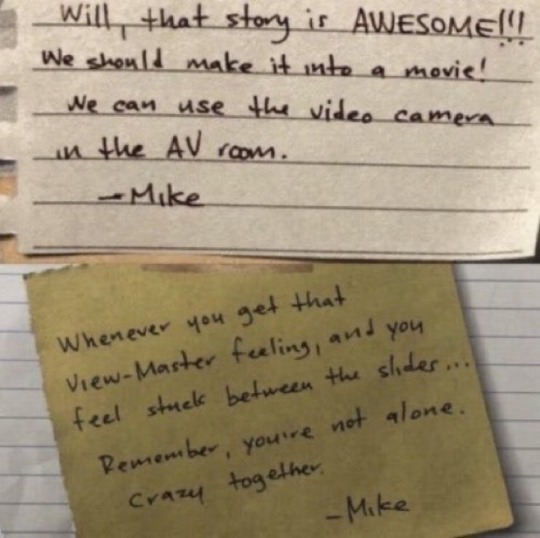 Will, that story is AWESOME!!!
We should make it into a movie!
We can use the video camera
in the AV room.
—Mike
Whenever you get that
View-Master feeling, and you
feel stuck between the slides...
Remember, you're not alone.
Crazy together.
—Mike